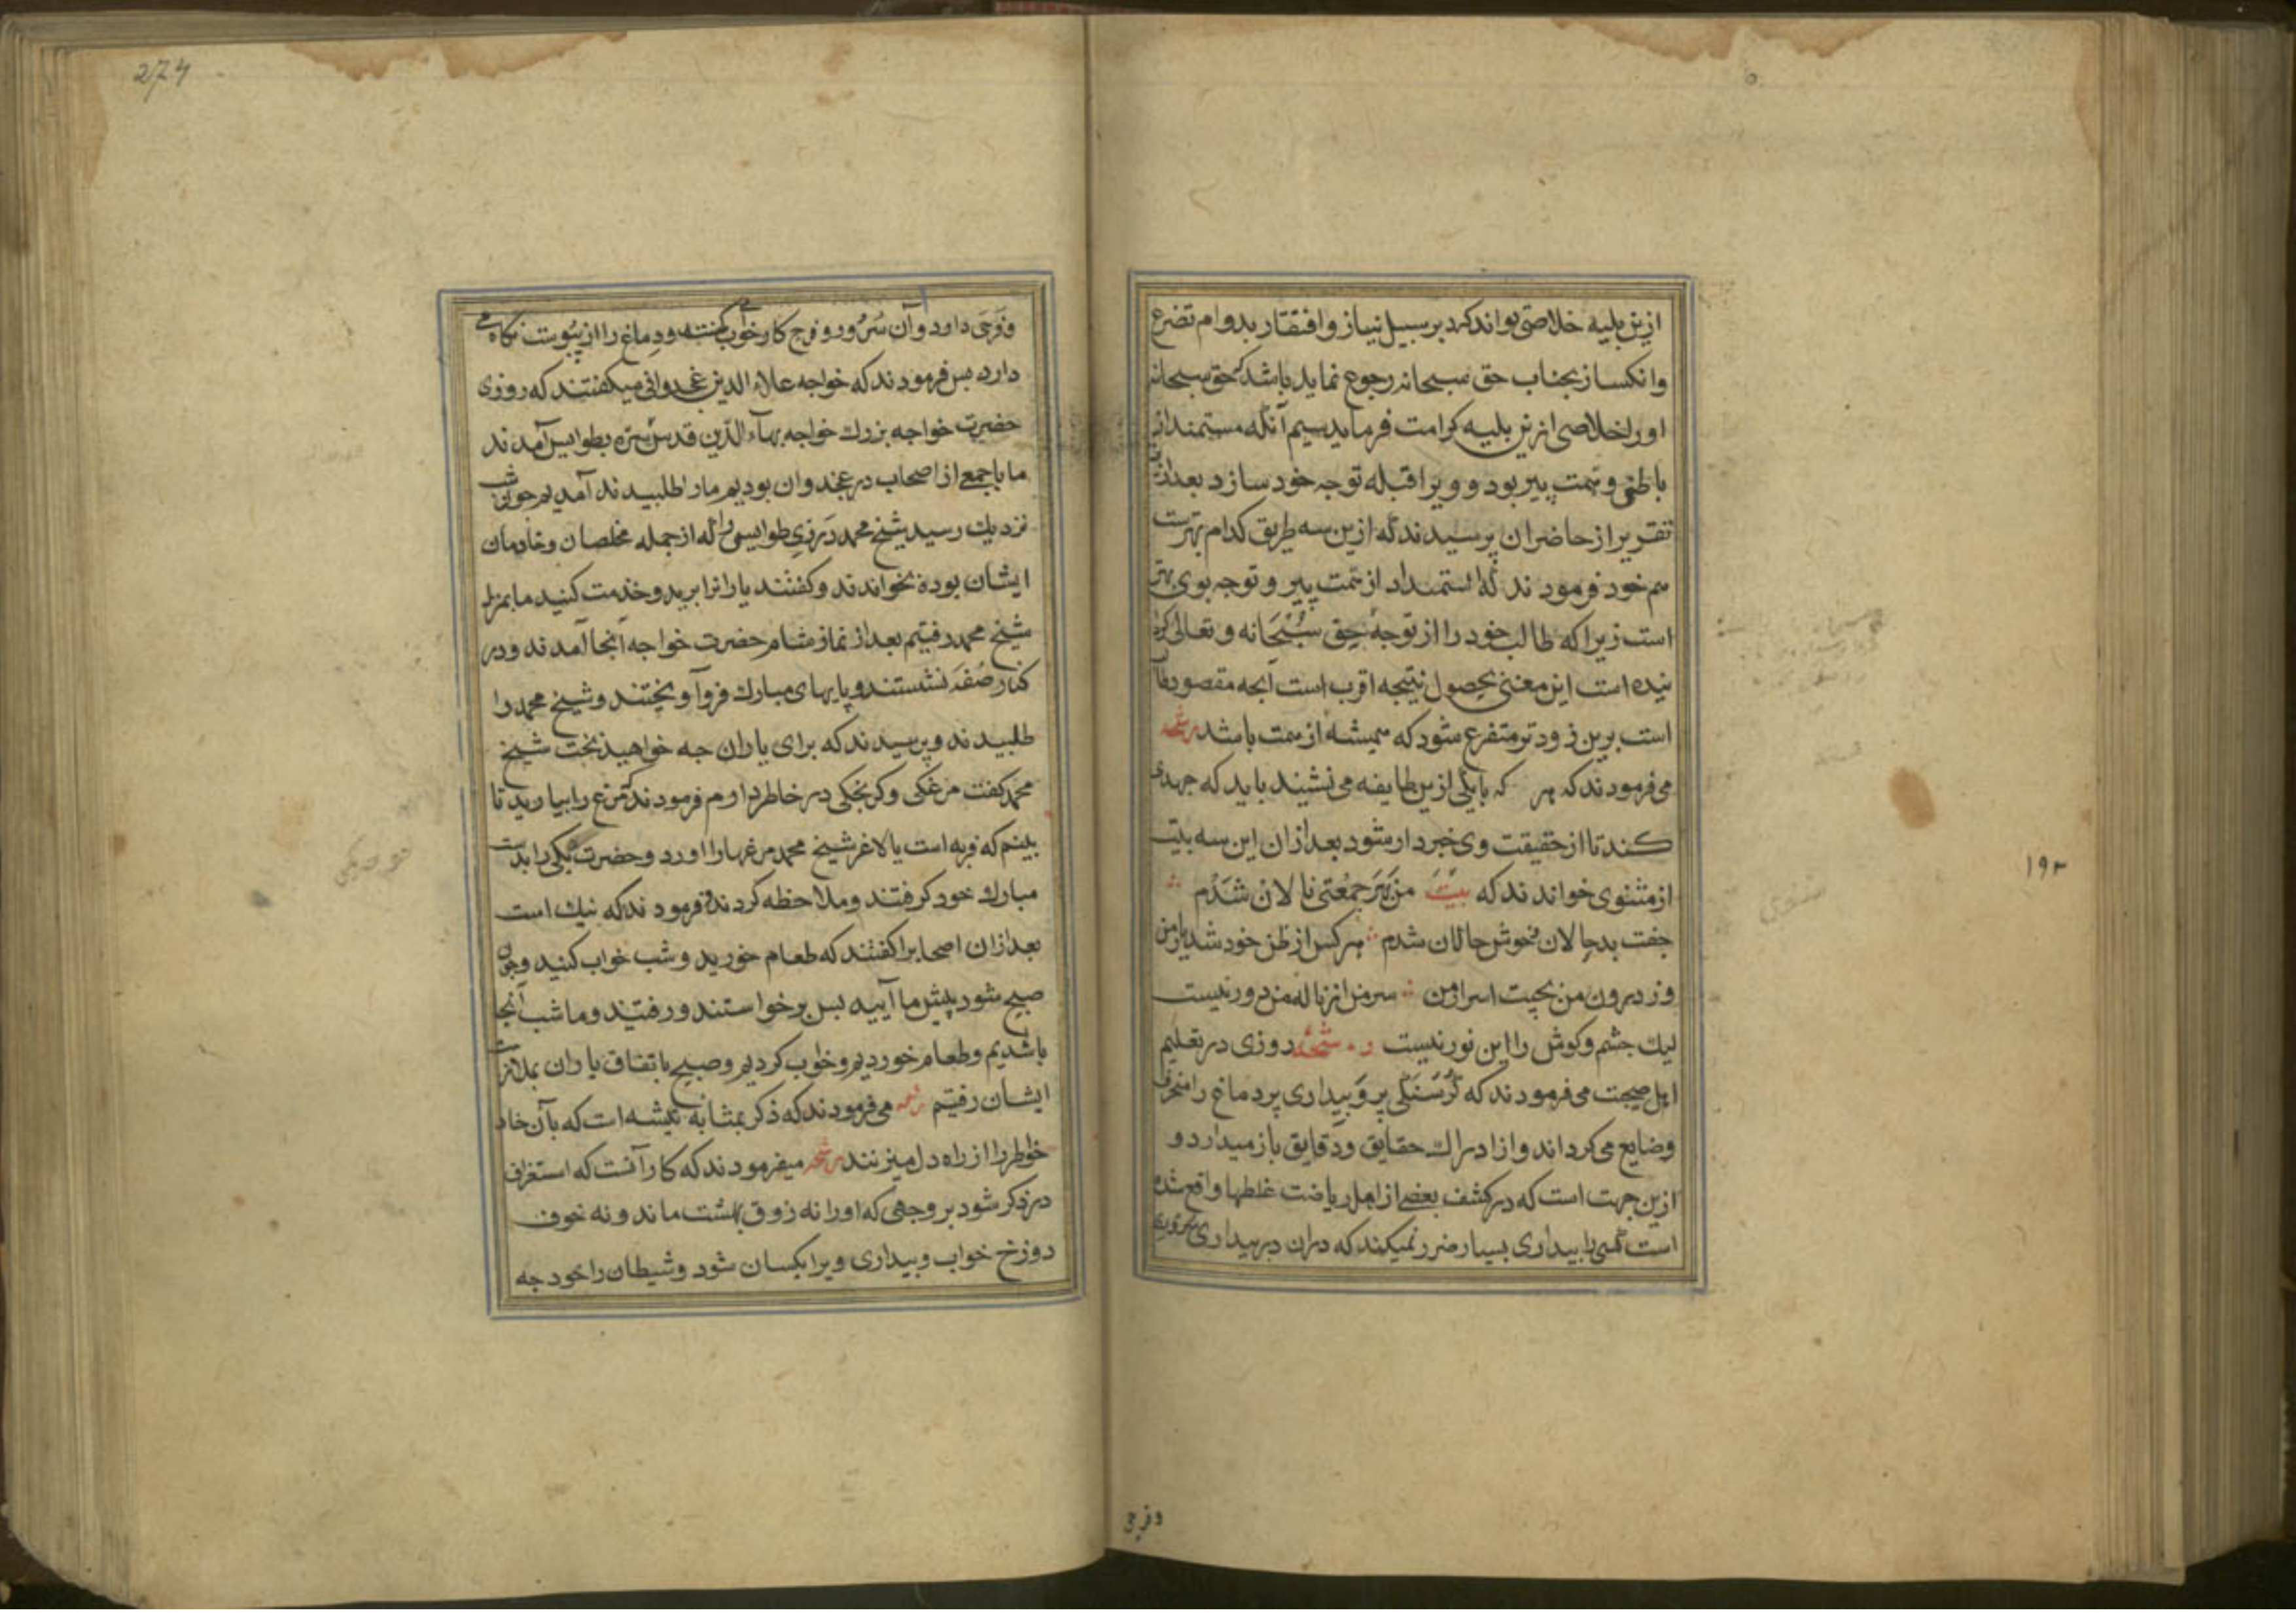 ازین بلیه خلاصی تواند کرد بر سبیل نیاز و افتقار بدوام تضرع
وانکسار بجناب حق سبحانه رجوع نماید باشد که حق سبحانه
اورا خلاصی ازین بلیه کرامت فرماید سیم آنکه مستمد از
باطن و همت پیر بود و ویرا قبله توجه خود سازد بعد ازین
تقریر از حاضران پرسیدند که ازین سه طریق کدام بهترست
هم خود فرمودند که استمداد از همت پیر و توجه بوی بهتر
است زیرا که طالب خود را از توجه حق سبحانه و تعالی
است این معنی بحصول نتیجه اقرب است آنچه مقصود
است برین زودتر متفرع شود که همیشه از همت باشد رشحه
می فرمودند که هر که با یکی ازین طایفه می نشیند باید که جهدی
کند تا از حقیقت وی خبردار شود بعد ازان این سه بیت
از مثنوی خواندند که بیت من بهر جمعتی نالان شدم
جفت بدحالان و خوش حالان شدم هر کس از ظن خود شد یار من
وز درون من نجست اسرار من سر من از ناله من دور نیست
لیک چشم و کوش را این نور نیست رشحه روزی در تعلیم
اهل صحبت می فرمودند که کرسنکی پر و بیداری پر دماغ را منحرف
وضایع می کرداند و از ادراک حقایق و دقایق باز میدارد و
ازین جهت است که در کشف بعضی از اهل ریاضت غلطها واقع شده
است کسی را بیداری بسیار ضرر نمیکند که دران در بیداری سروری
وفرحی
۱۹۳
274
وفرحی دارد و آن سرور و فرح کار خواب کند و دماغ را از یبوست نکاه می
دارد پس فرمودند که خواجه علاء الدین غجدوانی میکفتند که روزی
حضرت خواجه بزرک خواجه بهآء الدین قدس سره بطوایس آمدند
ما با جمعی از اصحاب در غجدوان بودیم مارا طلبیدند آمدیم چون شب
نزدیک رسید شیخ محمد درزی طوایسی را که از جمله مخلصان و خادمان
ایشان بوده بخواندند و کفتند یارانرا ببرید و خدمت کنید ما بمنزل
شیخ محمد رفتیم بعد از نماز شام حضرت خواجه آنجا آمدند و در
کنار صفه نشستند و پایهای مبارک فروآویختند و شیخ محمد را
طلبیدند و پرسیدند که برای یاران چه خواهید پخت شیخ
محمد کفت مرغکی و کرنجکی در خاطر دارم فرمودند مرغ را بیارید تا
بینم که فربه است یا لاغر شیخ محمد مرغها را آورد و حضرت یکی را بدست
مبارک خود کرفتند و ملاحظه کردند و فرمودند که نیک است
بعد ازان اصحابرا کفتند که طعام خورید و شب خواب کنید و چون
صبح شود پیش ما آیید پس برخواستند و رفتند و ما شب آنجا
باشدیم و طعام خوردیم و خواب کردیم و صبح باتفاق یاران بملازمت
ایشان رفتیم رشحه می فرمودند که ذکر بمثابه تیشه است که بآن خار
خواطر را از راه دل میزنند رشحه میفرمودند که کار آنست که استغراق
در ذکر شود بر وجهی که اورا نه ذوق بهشت ماند و نه خوف
دوزخ خواب و بیداری ویرا یکسان شود و شیطان را خود چه